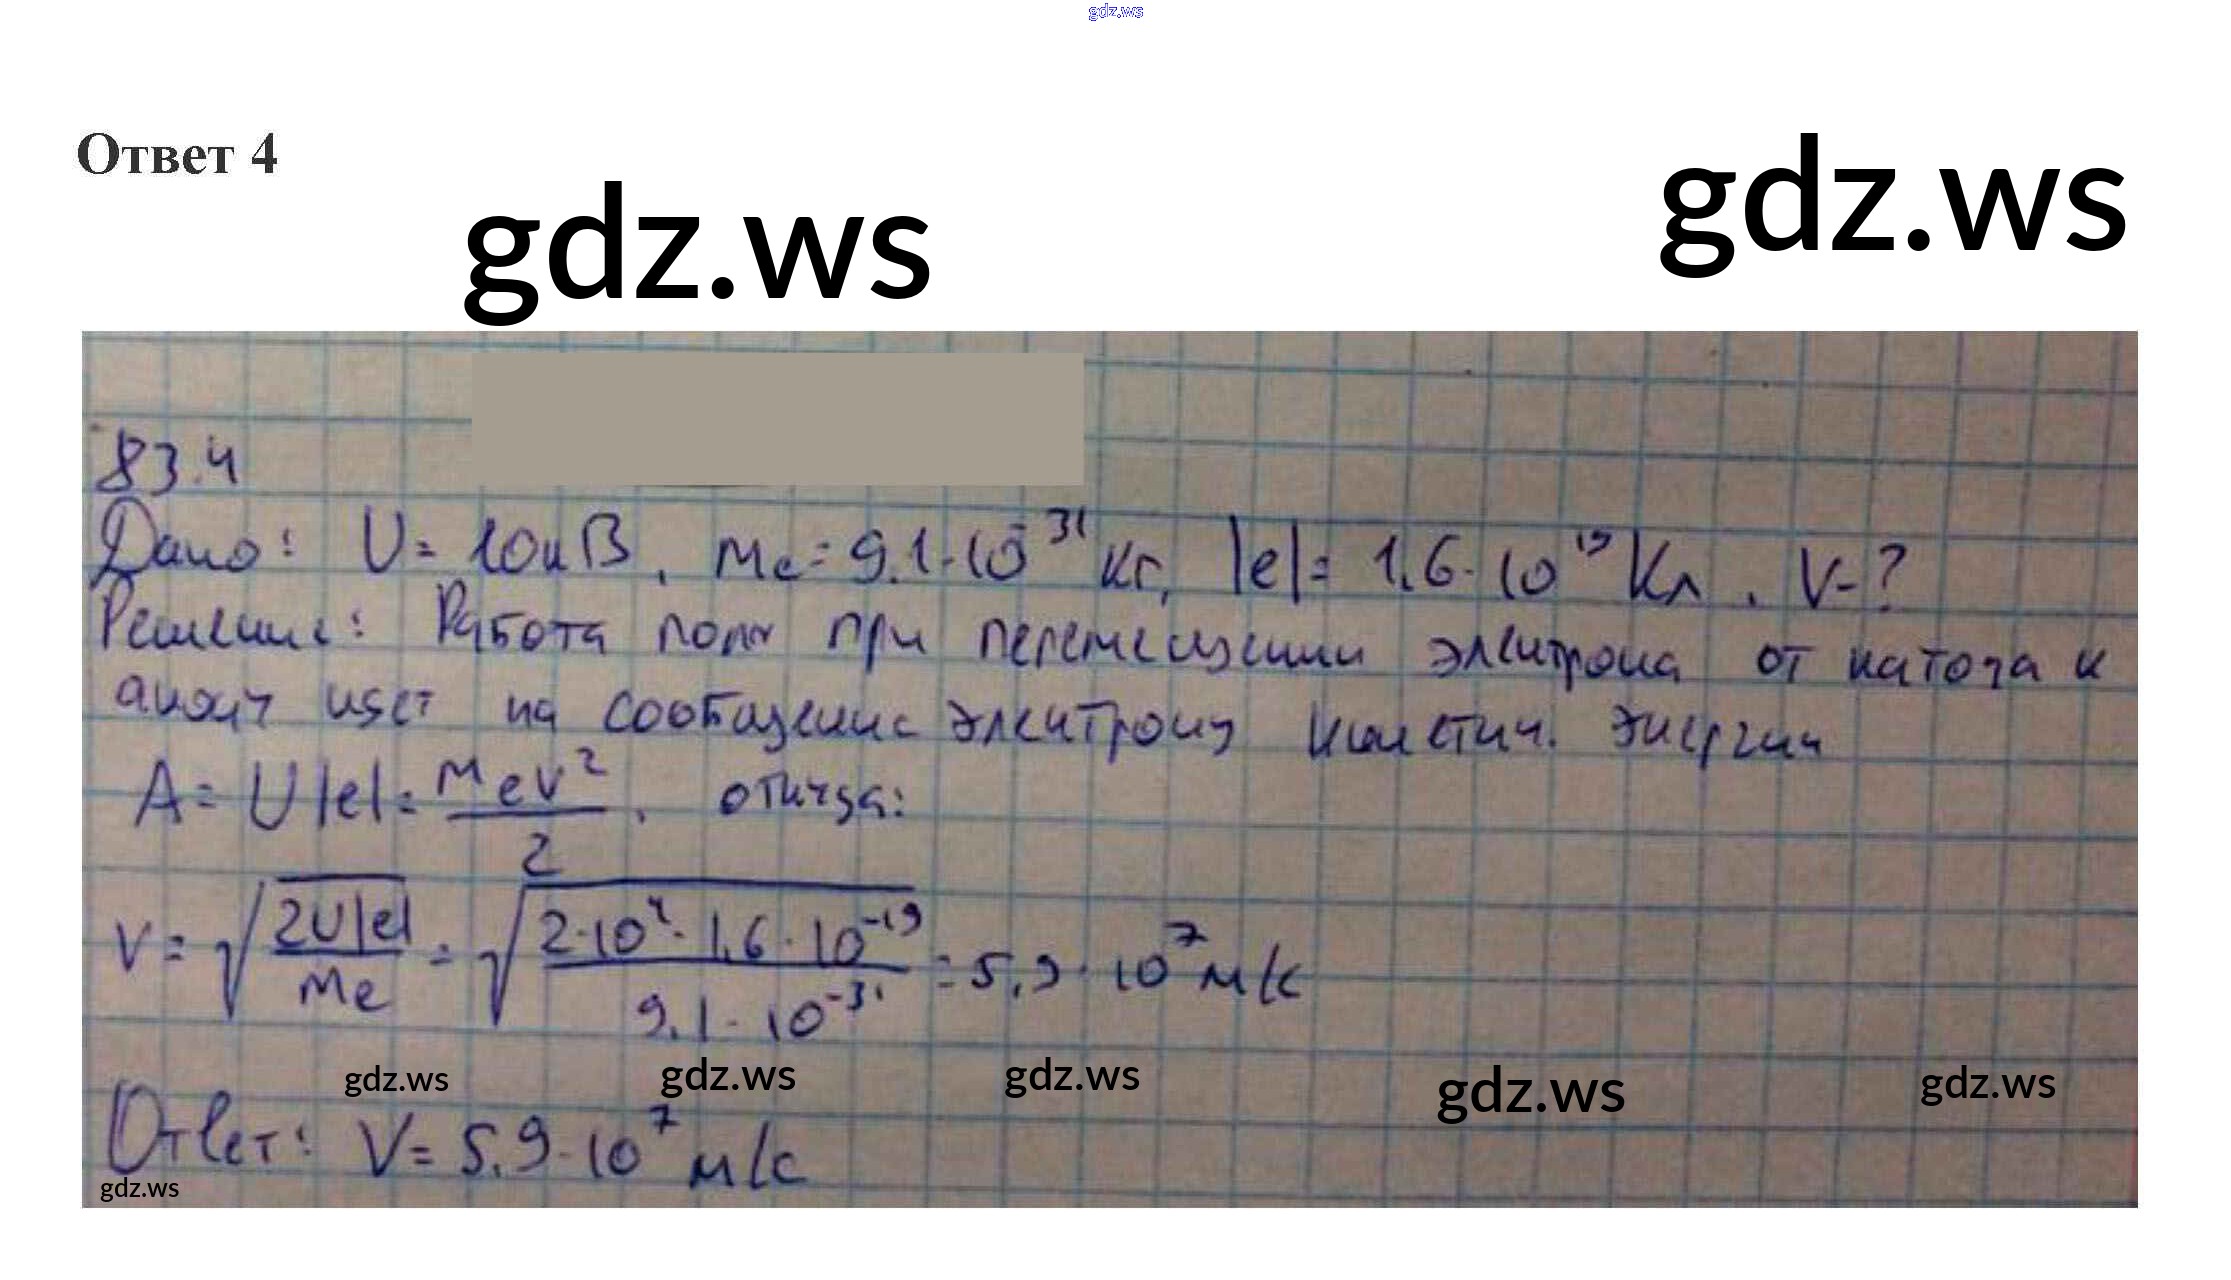 gdz.ws
Ответ 4
gdz.ws gdz.ws
83.4
Дано: U = 10кВ, me = 9.1·10^-31 кг, |e| = 1.6·10^19 Кл. V-?
Решение: Работа поля при перемещении электрона от катода к
аноду идет на сообщение электрону кинетич. энергии
A = U|e| = mev²/2, откуда:
V = √(2U|e|/me) = √(2·10^4·1.6·10^-19/9.1·10^-31) = 5,9·10^7 м/с
gdz.ws gdz.ws gdz.ws gdz.ws gdz.ws
Ответ: V = 5.9·10^7 м/с
gdz.ws